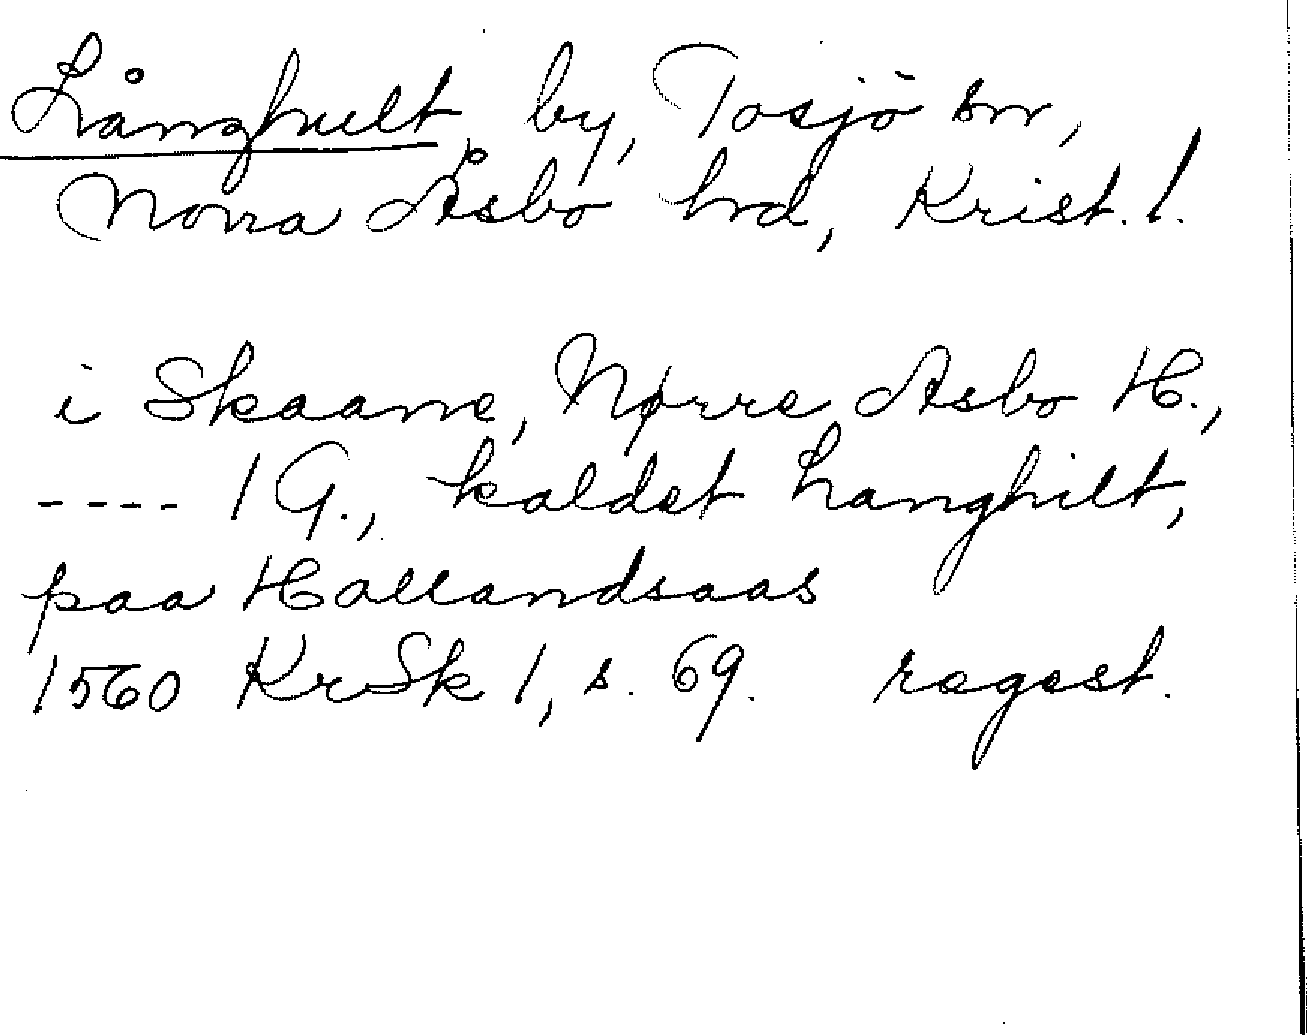 Långhult, by, Tosjö sn,
Norra Åsbo hrd, Krist. l.
i Skaane, Nørre Asbo H.,
---- 1 G., kaldet Langhilt,
paa Hallandsaas
1560 KrSk 1, s. 69. regest.